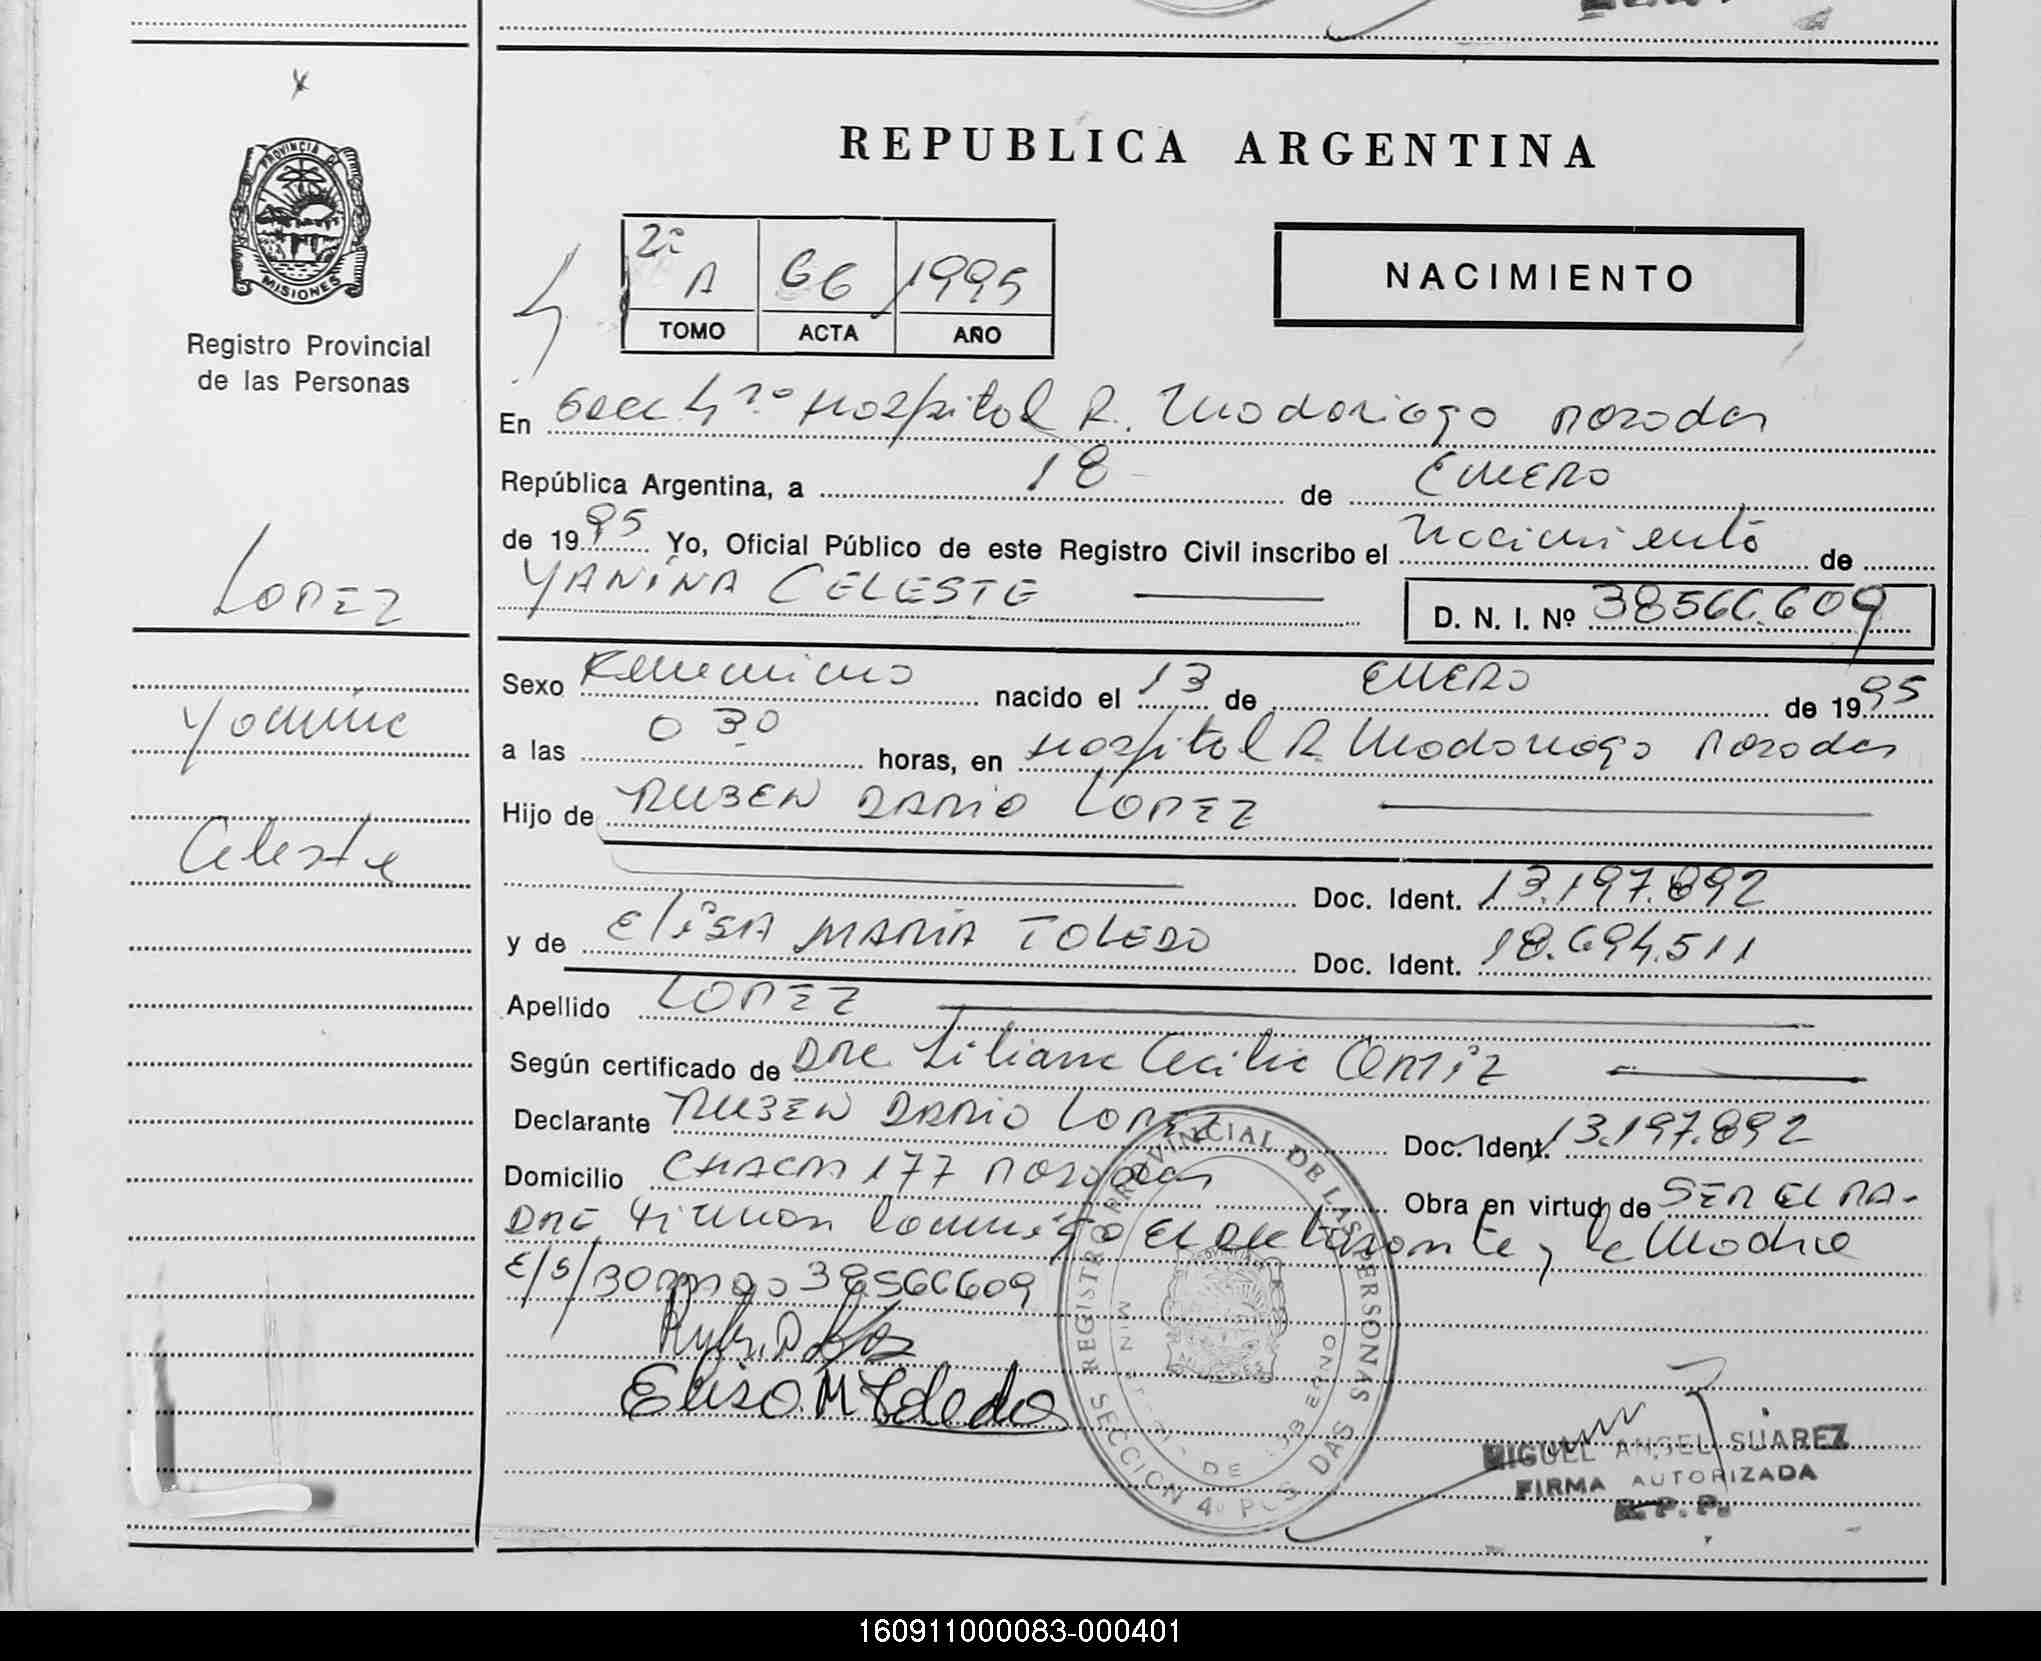 PROVINCIA DE
MISIONES
Registro Provincial
de las Personas
LOPEZ
Yanina
Celeste
REPUBLICA ARGENTINA
2º A 66 1995
TOMO ACTA AÑO
NACIMIENTO
En Secc 4ta Hospital R. Madariaga Posadas
República Argentina, a 18 de ENERO
de 1995 Yo, Oficial Público de este Registro Civil inscribo el Nacimiento de
YANINA CELESTE D. N. I. Nº 38566.609
Sexo Femenino nacido el 13 de ENERO de 1995
a las 0 30 horas, en Hospital R. Madariaga Posadas
Hijo de RUBEN DARIO LOPEZ
Doc. Ident. 13.197.892
y de ELISA MARIA TOLEDO Doc. Ident. 18.694.511
Apellido LOPEZ
Según certificado de DRA Liliana Cecilia ORTIZ
Declarante RUBEN DARIO LOPEZ Doc. Ident. 13.197.892
Domicilio CHACRA 177 Posadas Obra en virtud de SER EL PA-
DRE Firman conmigo El declarante y la Madre
E/S/ 38566609
Elisa M Toledo
REGISTRO PROVINCIAL DE LAS PERSONAS
MINISTERIO DE GOBIERNO
SECCION 4º POSADAS
MIGUEL ANGEL SUAREZ
FIRMA AUTORIZADA
R.P.P.
160911000083-000401